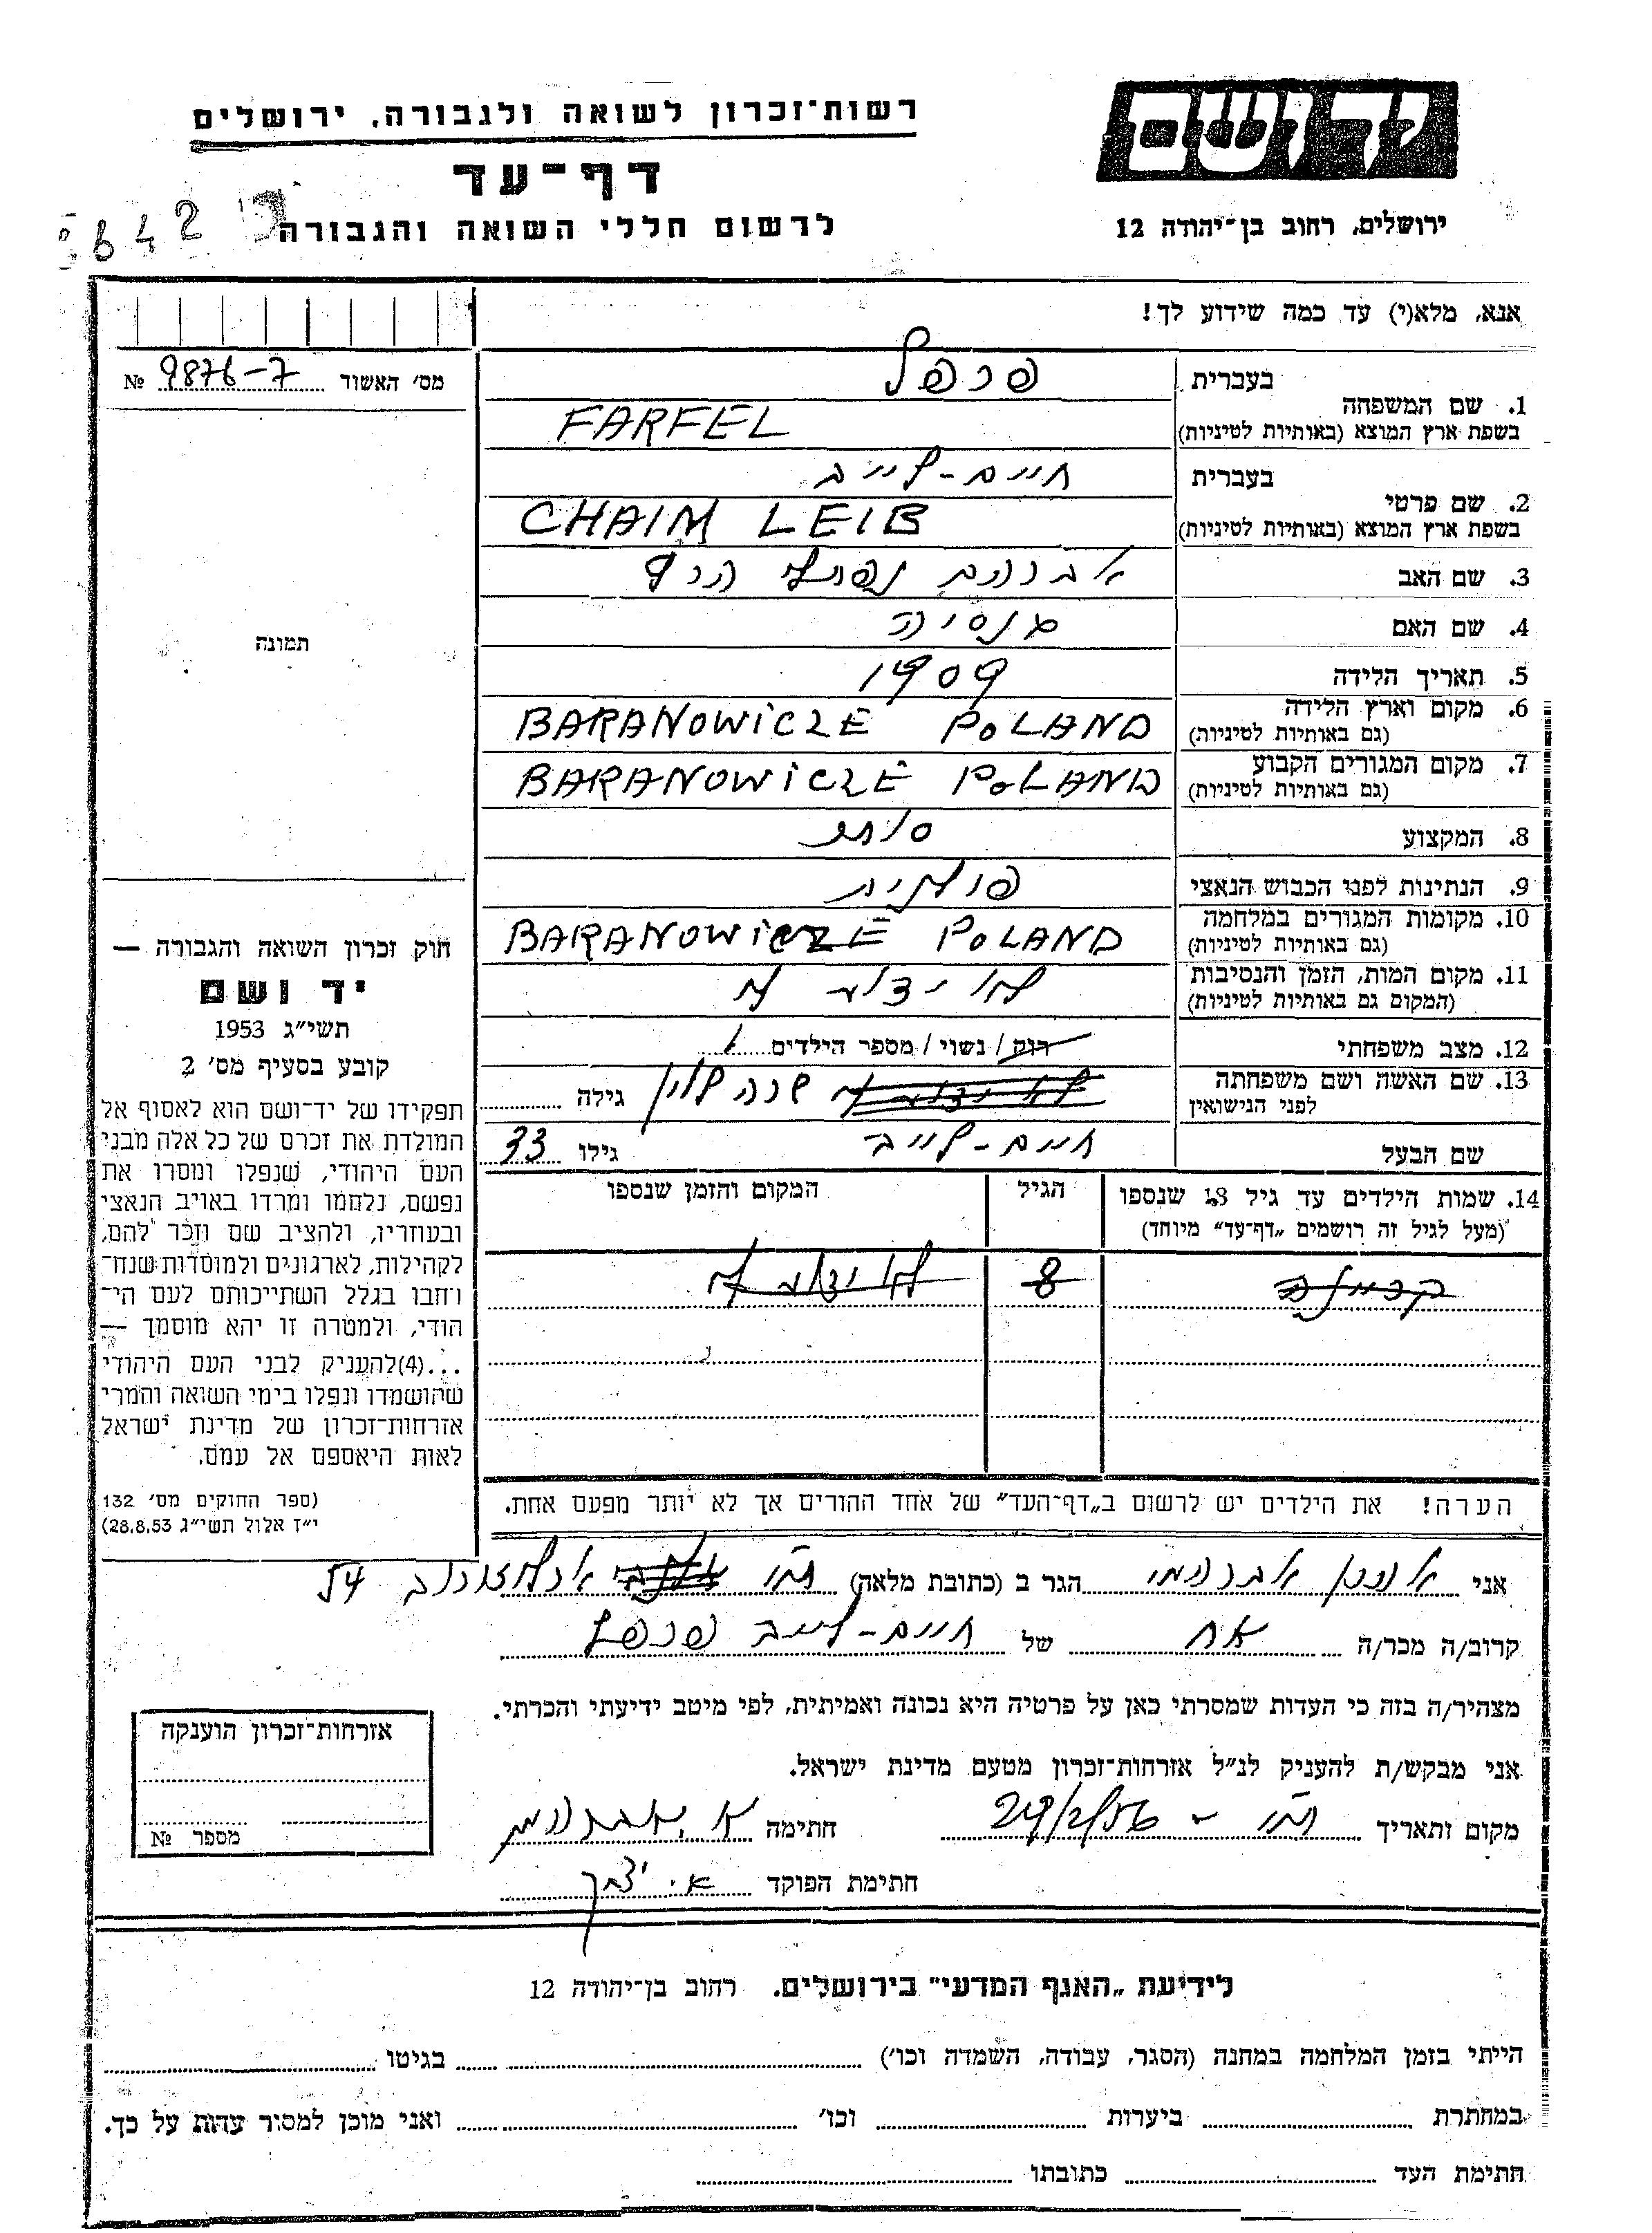 רשות־זכרון לשואה ולגבורה, ירושלים
יד ושם
דף־עד
לרשום חללי השואה והגבורה
ירושלים, רחוב בן־יהודה 12
642
אנא, מלא(י) עד כמה שידוע לך!
מס׳ האשור № 9876-7
1. שם המשפחה
בעברית פרפל
בשפת ארץ המוצא (באותיות לטיניות) FARFEL
2. שם פרטי
בעברית חיים-לייב
בשפת ארץ המוצא (באותיות לטיניות) CHAIM LEIB
3. שם האב אברהם נפתלי הרץ
4. שם האם
5. תאריך הלידה 1909
6. מקום וארץ הלידה
(גם באותיות לטיניות) BARANOWICZE POLAND
7. מקום המגורים הקבוע
(גם באותיות לטיניות) BARANOWICZE POLAND
8. המקצוע סוחר
9. הנתינות לפני הכבוש הנאצי פולנית
10. מקומות המגורים במלחמה
(גם באותיות לטיניות) BARANOWICZE POLAND
11. מקום המות, הזמן והנסיבות
(המקום גם באותיות לטיניות) לא ידוע לי
12. מצב משפחתי רווק / נשוי / מספר הילדים 1
13. שם האשה ושם משפחתה
לפני הנישואין לא ידוע לי שרה לוין גילה
שם הבעל חיים-לייב גילו 33
14. שמות הילדים עד גיל 18 שנספו
(מעל לגיל זה רושמים „דף־עד” מיוחד)
הגיל
המקום והזמן שנספו
8 לא ידוע לי
הערה! את הילדים יש לרשום ב„דף־העד” של אחד ההורים אך לא יותר מפעם אחת.
תמונה
חוק זכרון השואה והגבורה —
יד ושם
תשי״ג 1953
קובע בסעיף מס׳ 2
תפקידו של יד־ושם הוא לאסוף אל
המולדת את זכרם של כל אלה מבני
העם היהודי, שנפלו ומסרו את
נפשם, נלחמו ומרדו באויב הנאצי
ובעוזריו, ולהציב שם וזכר להם,
לקהילות, לארגונים ולמוסדות שנח־
רבו בגלל השתייכותם לעם הי־
הודי, ולמטרה זו יהא מוסמך —
...(4)להעניק לבני העם היהודי
שהושמדו ונפלו בימי השואה והמרי
אזרחות־זכרון של מדינת ישראל
לאות היאספם אל עמם.
(ספר החוקים מס׳ 132
י״ז אלול תשי״ג 28.8.53)
אני אהרן אברהמי הגר ב (כתובת מלאה) ת״א ארלוזורוב 54
קרוב/ה מכר/ה אח של חיים-לייב פרפל
מצהיר/ה בזה כי העדות שמסרתי כאן על פרטיה היא נכונה ואמיתית, לפי מיטב ידיעתי והכרתי.
אני מבקש/ת להעניק לנ״ל אזרחות־זכרון מטעם מדינת ישראל.
מקום ותאריך ת״א - 29/2/56 חתימה א. אברהמי
חתימת הפוקד א. יצחק
אזרחות־זכרון הוענקה
מספר №
לידיעת „האגף המדעי” בירושלים. רחוב בן־יהודה 12
הייתי בזמן המלחמה במחנה (הסגר, עבודה, השמדה וכו׳) בגיטו
במחתרת ביערות וכו׳ ואני מוכן למסור עדות על כך.
חתימת העד כתובתו